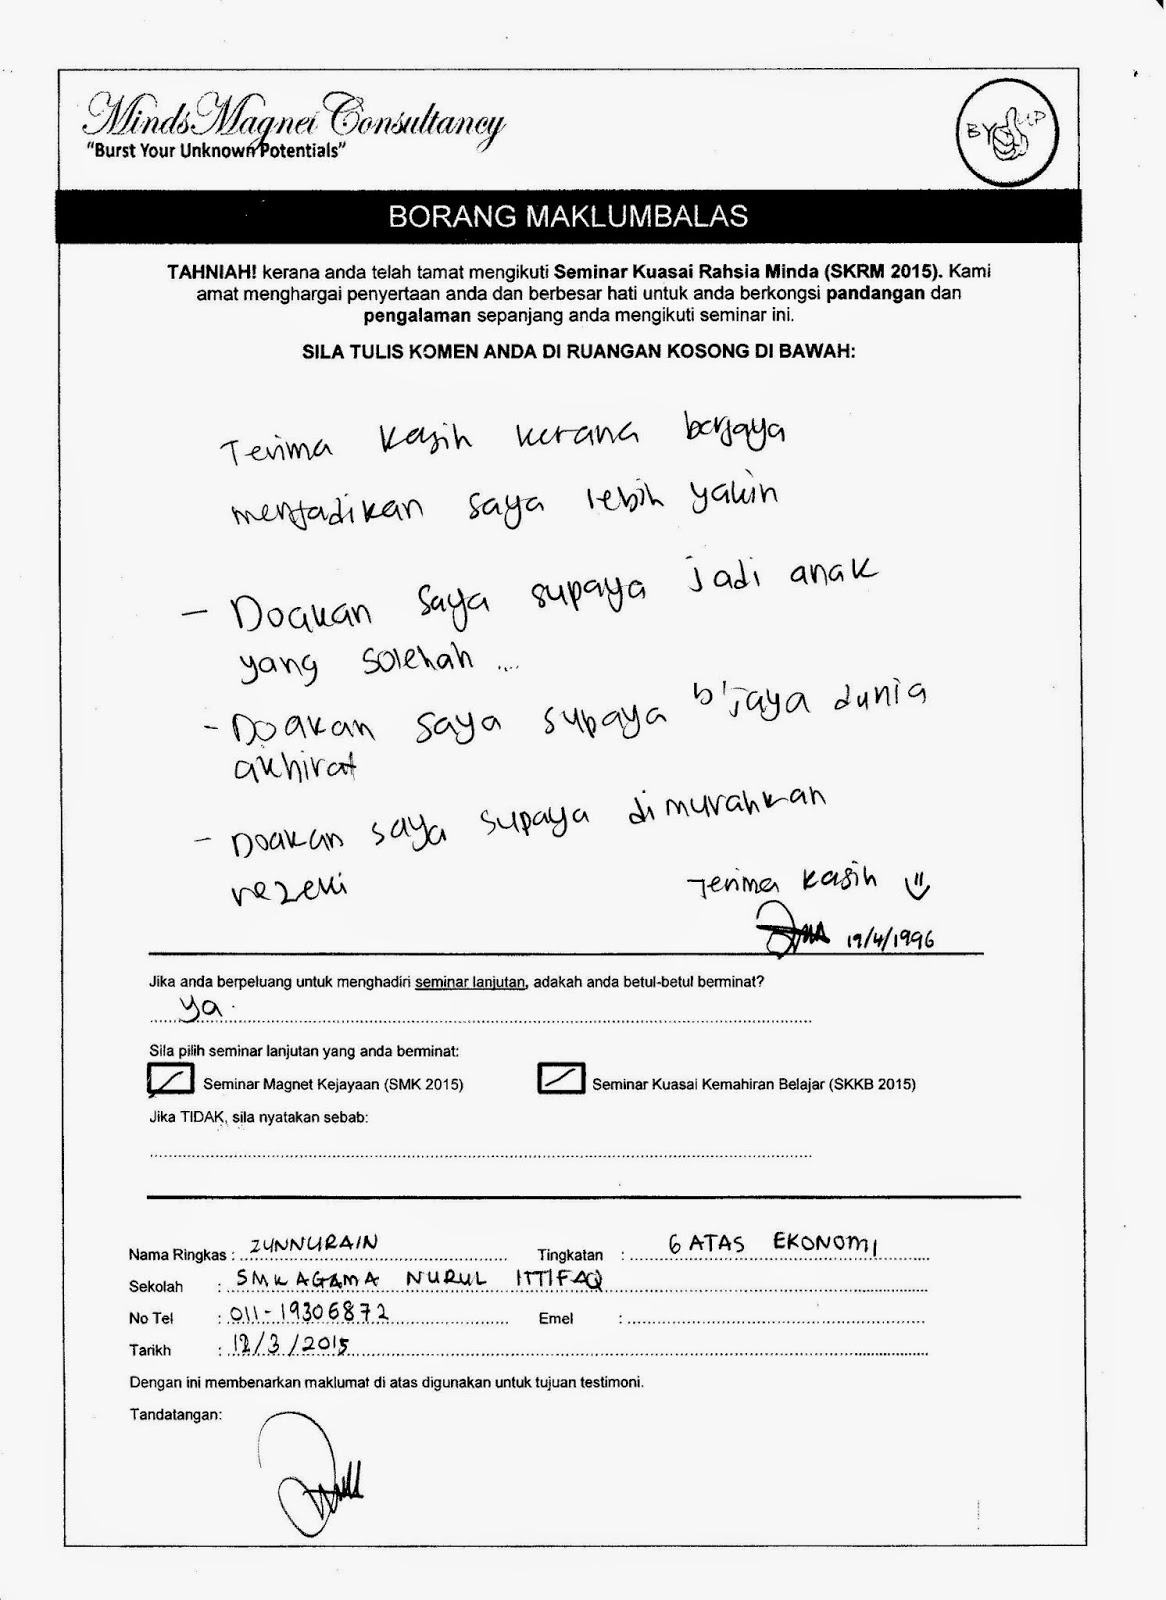 Minds Magnet Consultancy
"Burst Your Unknown Potentials"
BY UP
BORANG MAKLUMBALAS
TAHNIAH! kerana anda telah tamat mengikuti Seminar Kuasai Rahsia Minda (SKRM 2015). Kami
amat menghargai penyertaan anda dan berbesar hati untuk anda berkongsi pandangan dan
pengalaman sepanjang anda mengikuti seminar ini.
SILA TULIS KOMEN ANDA DI RUANGAN KOSONG DI BAWAH:
Terima kasih kerana berjaya
menjadikan saya lebih yakin
- Doakan saya supaya jadi anak
yang solehah ....
- Doakan saya supaya b'jaya dunia
akhirat
- Doakan saya supaya dimurahkan
rezeki
Terima kasih
19/4/1996
Jika anda berpeluang untuk menghadiri seminar lanjutan, adakah anda betul-betul berminat?
Ya.
Sila pilih seminar lanjutan yang anda berminat:
Seminar Magnet Kejayaan (SMK 2015) Seminar Kuasai Kemahiran Belajar (SKKB 2015)
Jika TIDAK, sila nyatakan sebab:
Nama Ringkas : ZUNNURAIN Tingkatan : 6 ATAS EKONOMI
Sekolah : SMK AGAMA NURUL ITTIFAQ
No Tel : 011-19306872 Emel :
Tarikh : 12/3/2015
Dengan ini membenarkan maklumat di atas digunakan untuk tujuan testimoni.
Tandatangan: